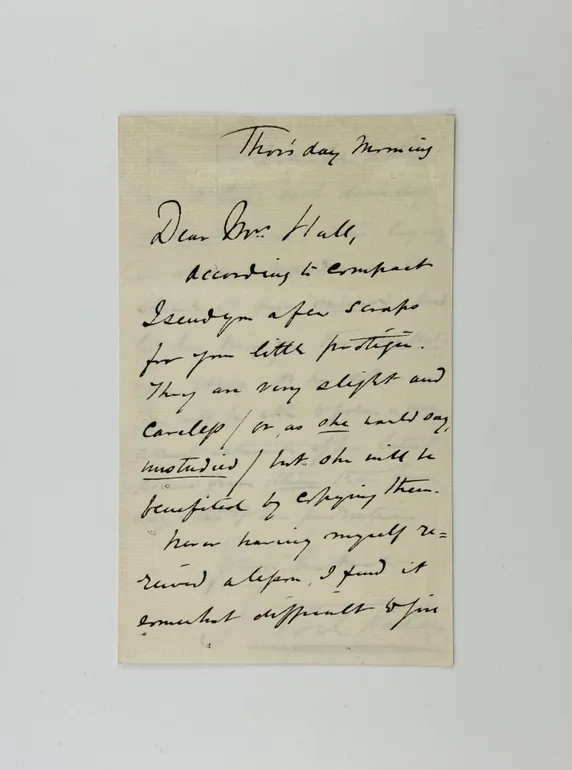 Thursday Morning
Dear Mrs. Hall,
According to compact
I send you a few scraps
for your little protégée.
They are very slight and
careless / or as she would say,
unstudied / but she will be
benefited by copying them.
Never having myself re=
ceived a lesson, I find it
somewhat difficult to give